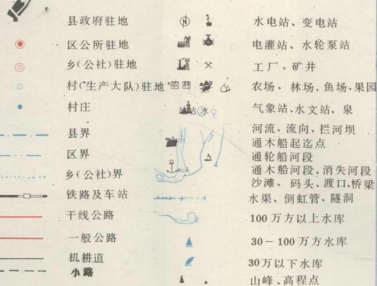 县政府驻地
区公所驻地
乡(公社)驻地
村(生产大队)驻地
村庄
县界
区界
乡(公社)界
铁路及车站
干线公路
一般公路
机耕道
小路
水电站、变电站
电灌站、水轮泵站
工厂、矿井
农场、林场、鱼场、果园
气象站、水文站、泉
河流、流向、拦河坝
通木船起迄点
通轮船河段
通木船河段、消失河段
沙滩、码头、渡口、桥梁
水渠、倒虹管、隧洞
100万方以上水库
30-100万方水库
30万以下水库
山峰、高程点